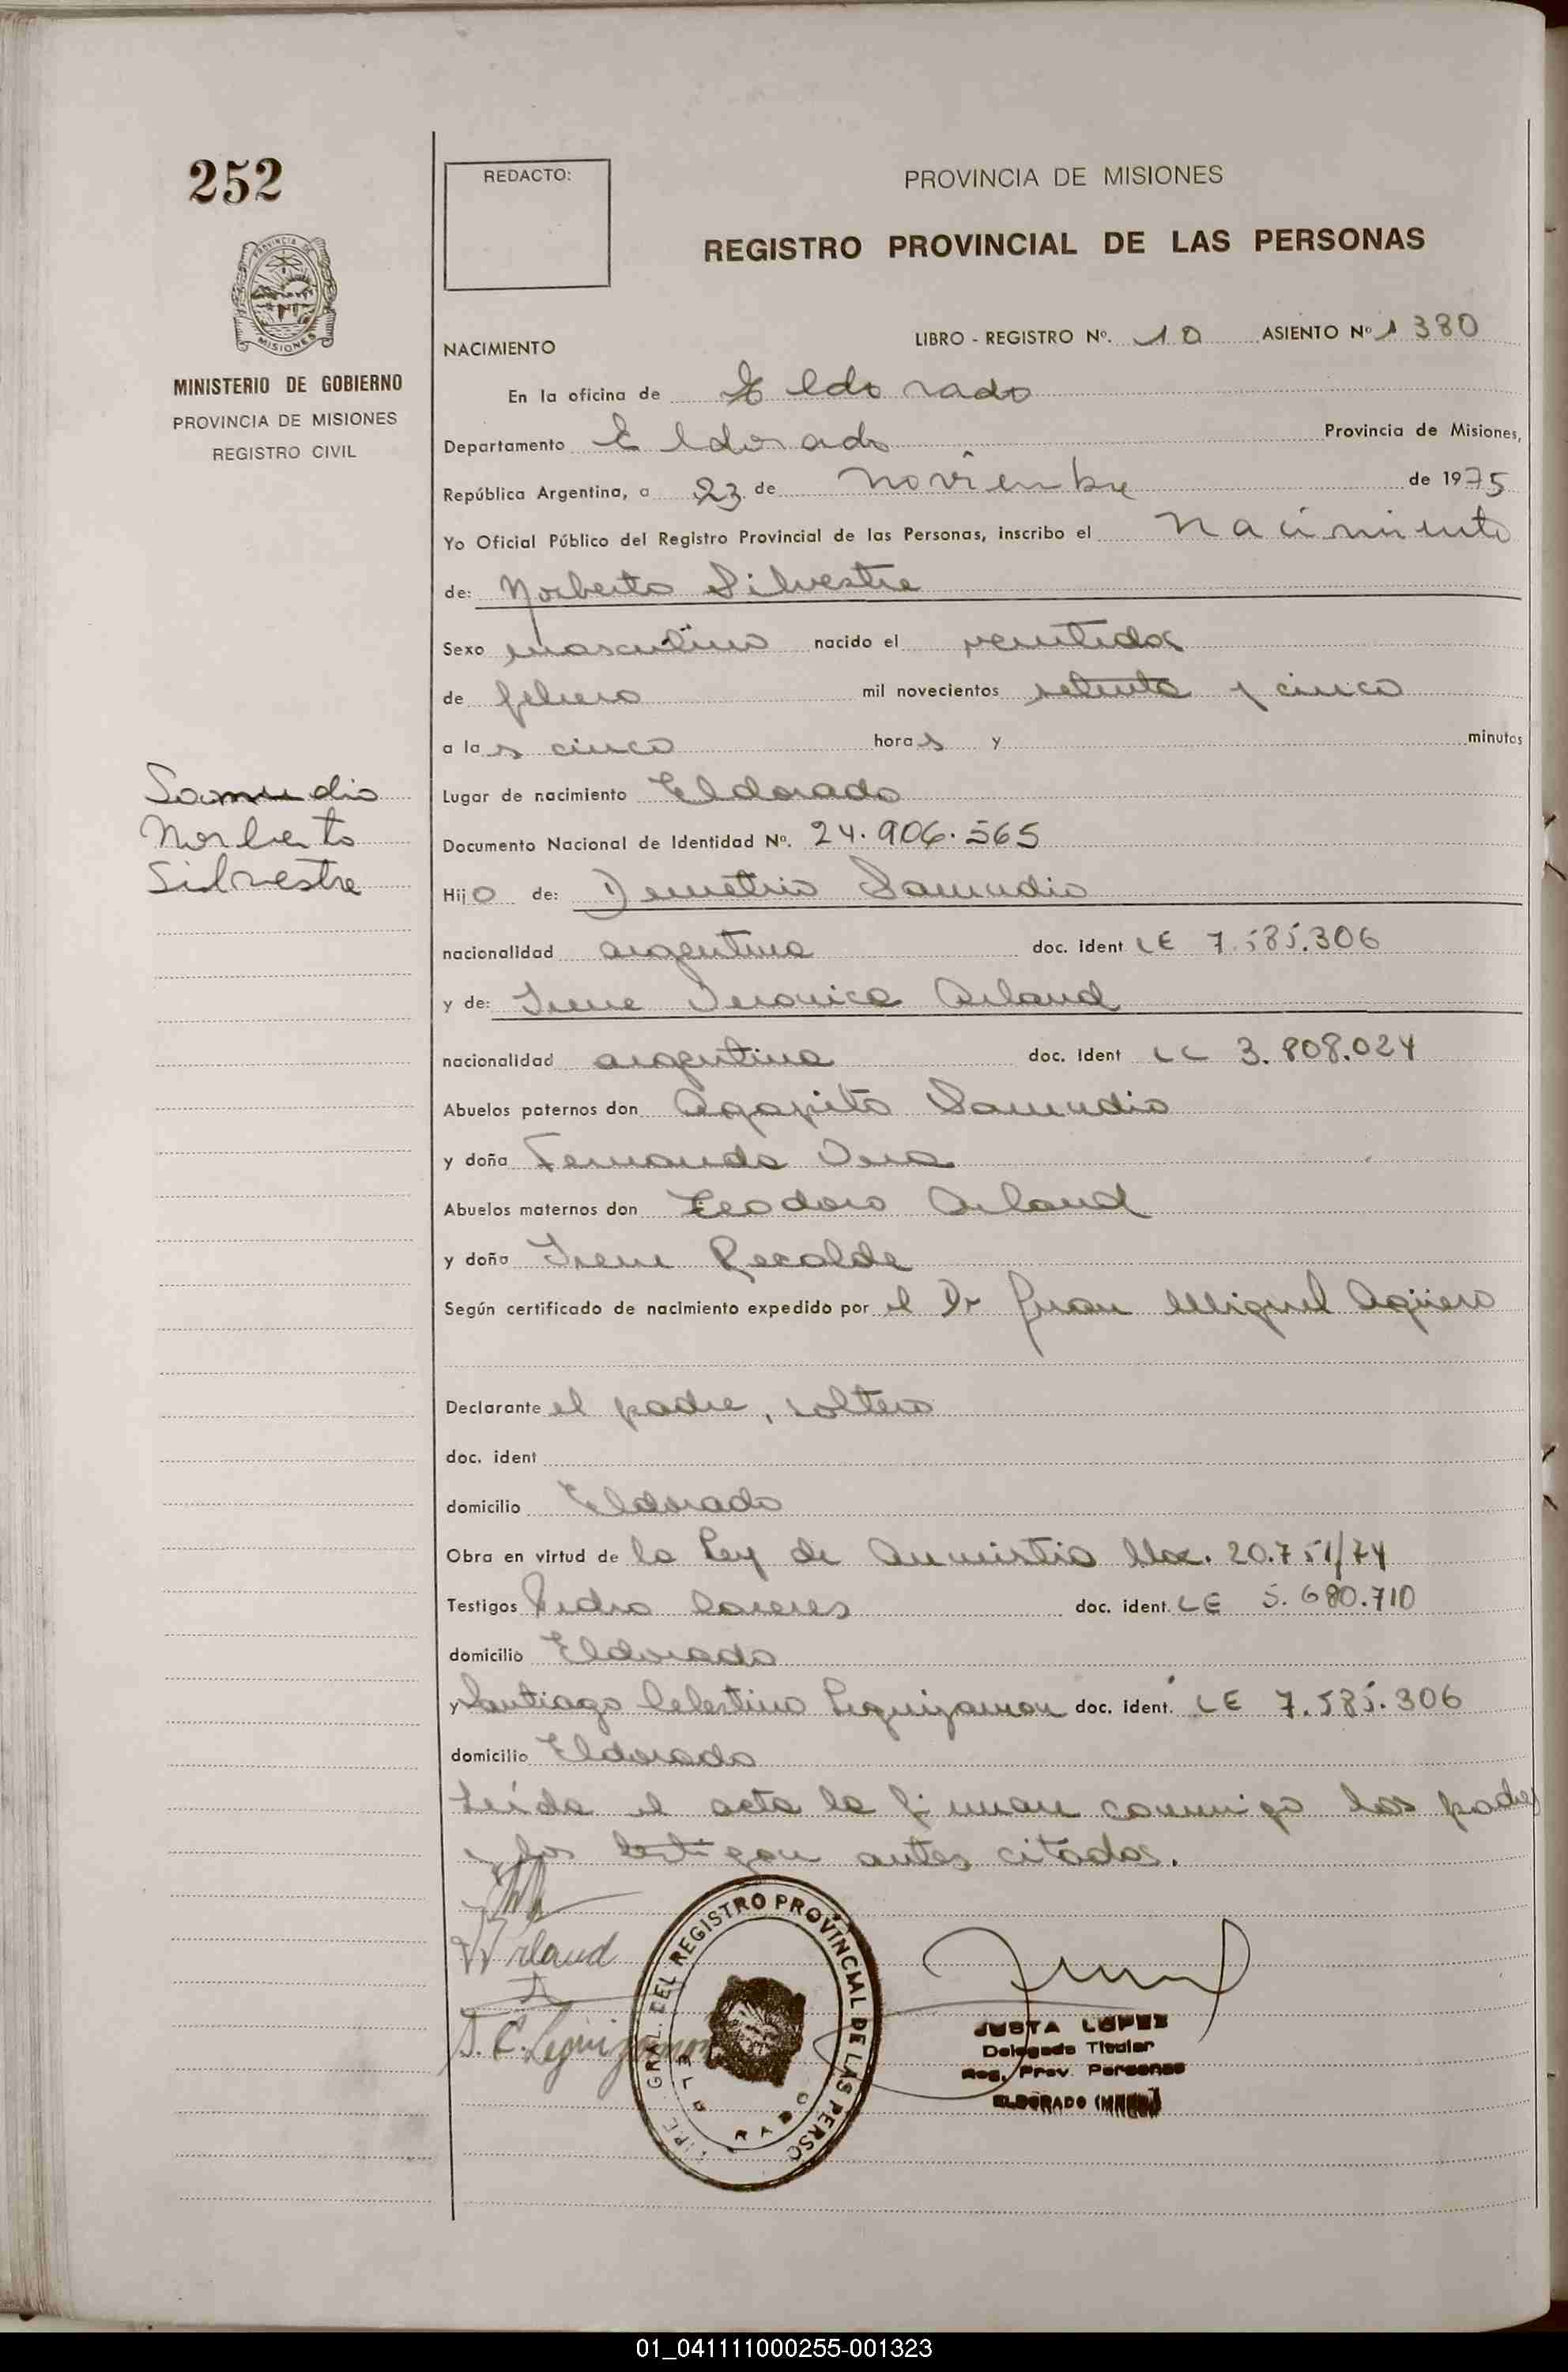 252
REDACTO:
PROVINCIA DE MISIONES
REGISTRO PROVINCIAL DE LAS PERSONAS
PROVINCIA DE
MISIONES
MINISTERIO DE GOBIERNO
PROVINCIA DE MISIONES
REGISTRO CIVIL
NACIMIENTO
LIBRO - REGISTRO Nº. 10 ASIENTO Nº 1380
En la oficina de Eldorado
Departamento Eldorado Provincia de Misiones,
República Argentina, a 23 de noviembre de 1975
Yo Oficial Público del Registro Provincial de las Personas, inscribo el nacimiento
de: Norberto Silvestre
Sexo masculino nacido el veintidos
de febrero mil novecientos setenta y cinco
a las cinco horas y minutos
Samudio
Norberto
Silvestre
Lugar de nacimiento Eldorado
Documento Nacional de Identidad Nº. 24.906.565
Hijo de: Demetrio Samudio
nacionalidad argentina doc. ident LE 7.585.306
y de: Irene Veronica Arland
nacionalidad argentina doc. Ident LC 3.808.024
Abuelos paternos don Agapito Samudio
y doña Fernanda Vera
Abuelos maternos don Teodoro Arland
y doña Irene Recalde
Según certificado de nacimiento expedido por el Dr Juan Miguel Agüero
Declarante el padre, soltero
doc. ident
domicilio Eldorado
Obra en virtud de la Ley de Amnistia Nac. 20.751/74
Testigos Pedro Caceres doc. ident. LE 5.680.710
domicilio Eldorado
y Santiago Celestino Leguizamon doc. ident. LE 7.585.306
domicilio Eldorado
Leída el acta la firman conmigo los padres
y los testigos antes citados.
Arland
S. C. Leguizamon
GRAL. DEL REGISTRO PROVINCIAL DE LAS PERSO
ELDORADO
JUSTA LOPEZ
Delegada Titular
Reg. Prov. Personas
ELDORADO
01_041111000255-001323